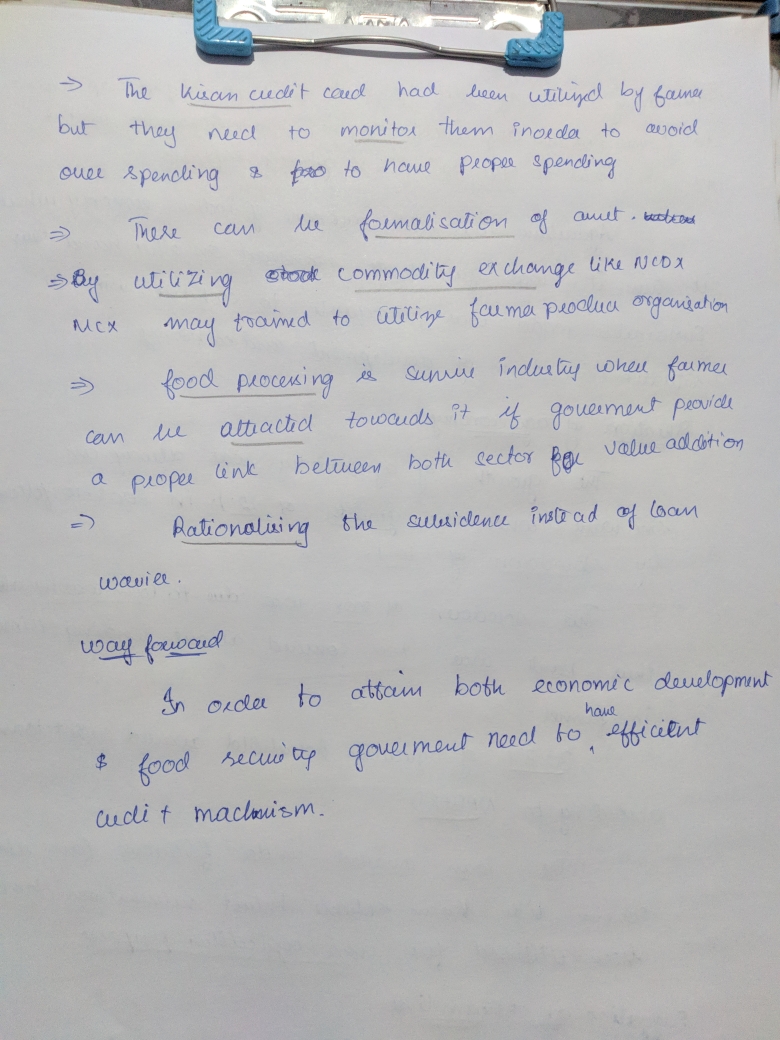 ⇒ The Kisan credit card had been utilized by farmer
but they need to monitor them inorder to avoid
over spending & to have proper spending
⇒ There can be formalisation of
⇒ By utilizing commodity exchange like NCDX
MCX may trained to utilize farmer producer organisation
⇒ food processing is sunrise industry where farmer
can be attracted towards it if government provide
a proper link between both sector for value addition
⇒ Rationalising the subsidence instead of loan
wavier.
way forward
In order to attain both economic development
& food security government need to have efficient
credit